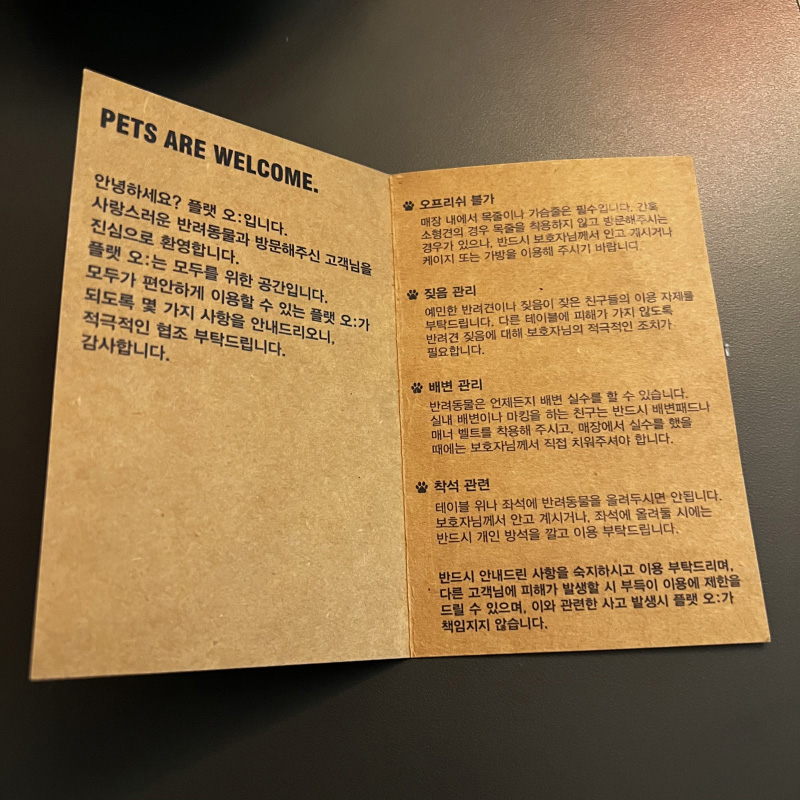 PETS ARE WELCOME.
안녕하세요? 플랫 오:입니다.
사랑스러운 반려동물과 방문해주신 고객님을
진심으로 환영합니다.
플랫 오:는 모두를 위한 공간입니다.
모두가 편안하게 이용할 수 있는 플랫 오:가
되도록 몇 가지 사항을 안내드리오니,
적극적인 협조 부탁드립니다.
감사합니다.
오프리쉬 불가
매장 내에서 목줄이나 가슴줄은 필수입니다. 간혹
소형견의 경우 목줄을 착용하지 않고 방문해주시는
경우가 있으나, 반드시 보호자님께서 안고 계시거나
케이지 또는 가방을 이용해 주시기 바랍니다.
짖음 관리
예민한 반려견이나 짖음이 잦은 친구들의 이용 자제를
부탁드립니다. 다른 테이블에 피해가 가지 않도록
반려견 짖음에 대해 보호자님의 적극적인 조치가
필요합니다.
배변 관리
반려동물은 언제든지 배변 실수를 할 수 있습니다.
실내 배변이나 마킹을 하는 친구는 반드시 배변패드나
매너 벨트를 착용해 주시고, 매장에서 실수를 했을
때에는 보호자님께서 직접 치워주셔야 합니다.
착석 관련
테이블 위나 좌석에 반려동물을 올려두시면 안됩니다.
보호자님께서 안고 계시거나, 좌석에 올려둘 시에는
반드시 개인 방석을 깔고 이용 부탁드립니다.
반드시 안내드린 사항을 숙지하시고 이용 부탁드리며,
다른 고객님에 피해가 발생할 시 부득이 이용에 제한을
드릴 수 있으며, 이와 관련한 사고 발생시 플랫 오:가
책임지지 않습니다.